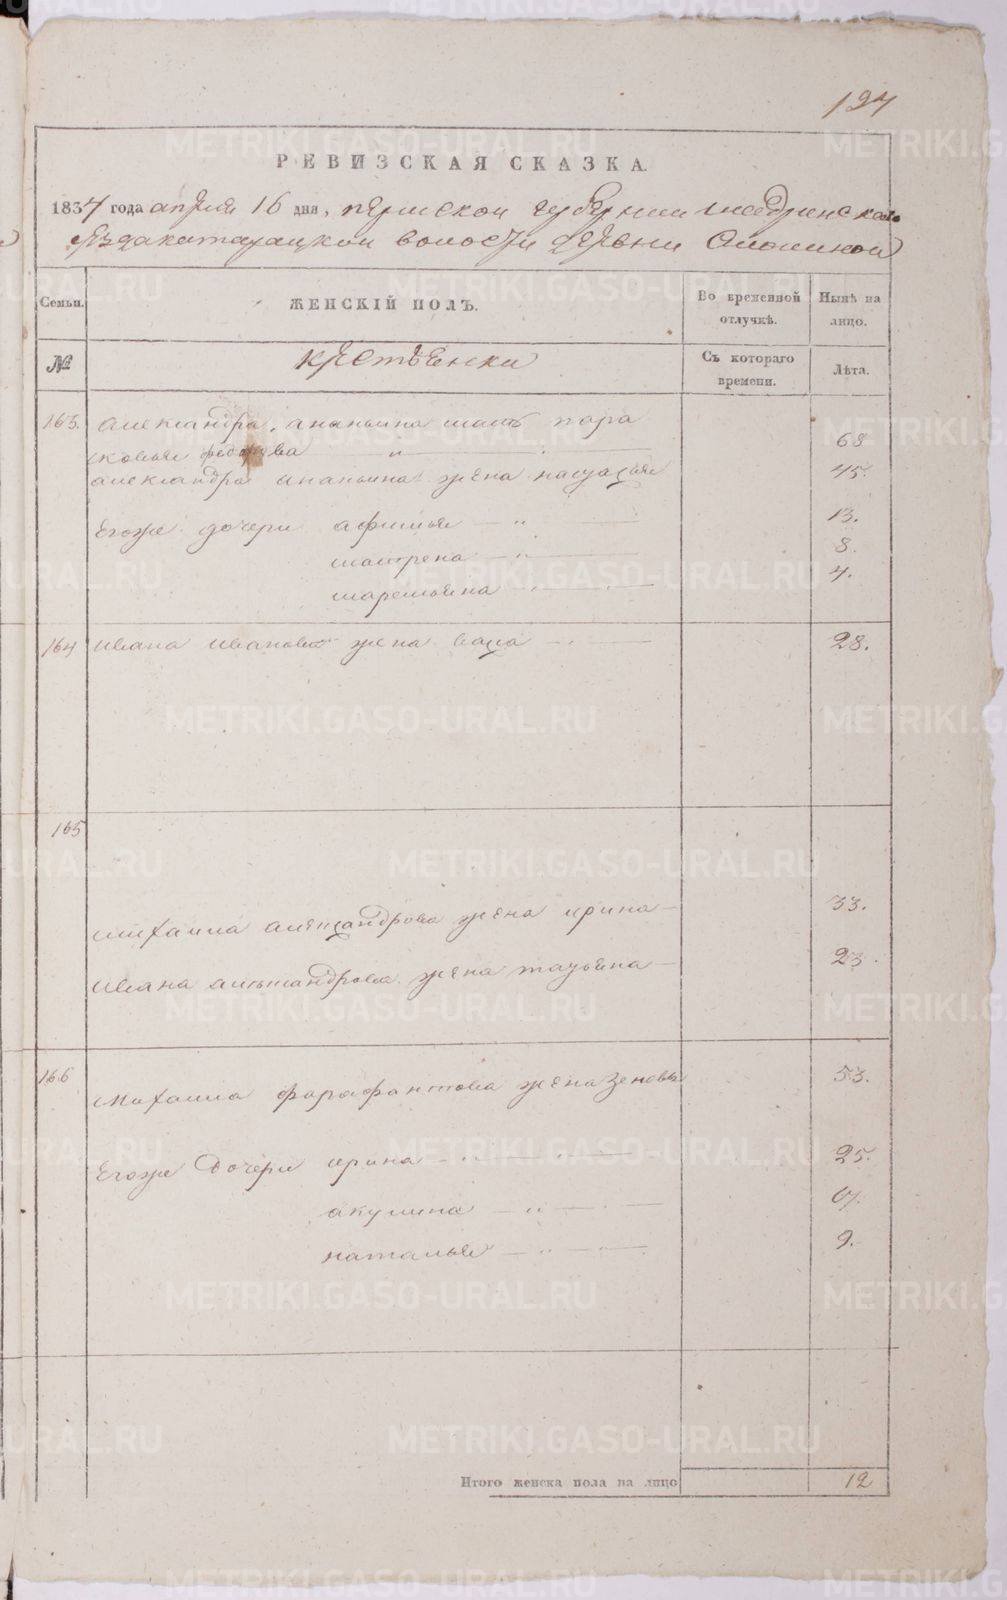 197
РЕВИЗСКАЯ СКАЗКА.
1834 года апреля 16 дня, пермской губернии шадринскаго
уезда катарацкой волости деревни
Семьи. ЖЕНСКІЙ ПОЛЪ. Во временной отлучкѣ. Нынѣ на лицо.
№ крестьенки Съ котораго времени. Лѣта.
163. александра ананьина мать пара
сковья 68
александра ананьина жена настасья 45.
Егоже дочери афимья 13.
матрена 8.
маремьяна 4.
164 ивана иванова жена васа 28.
165
михаила александрова жена ирина 33.
ивана александрова жена татьяна 23.
166 михаила фарафантова жена зеновья 53.
Егоже дочери ирина 25.
акулина
наталья 9.
Итого женска пола на лицо 12
METRIKI.GASO-URAL.RU